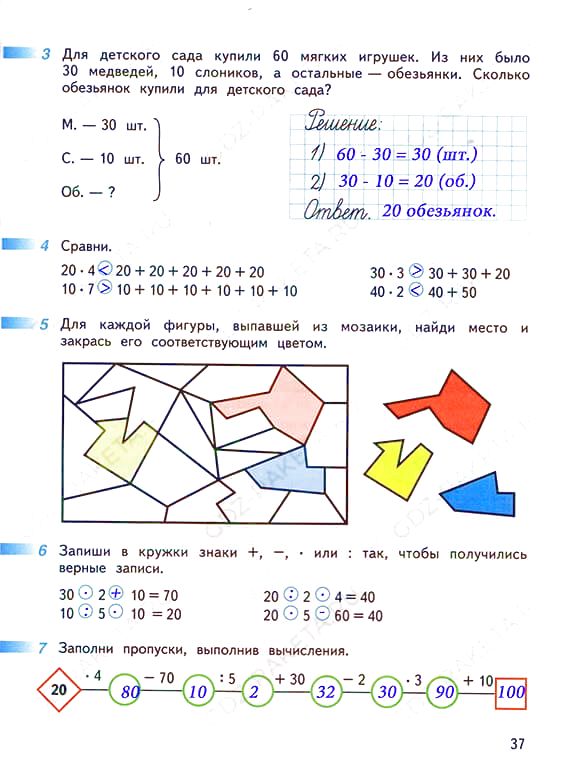 3 Для детского сада купили 60 мягких игрушек. Из них было
30 медведей, 10 слоников, а остальные — обезьянки. Сколько
обезьянок купили для детского сада?
М. — 30 шт.
С. — 10 шт. 60 шт.
Об. — ?
Решение:
1) 60 - 30 = 30 (шт.)
2) 30 - 10 = 20 (об.)
Ответ. 20 обезьянок.
4 Сравни.
20 · 4 < 20 + 20 + 20 + 20 + 20 30 · 3 > 30 + 30 + 20
10 · 7 > 10 + 10 + 10 + 10 + 10 + 10 40 · 2 < 40 + 50
5 Для каждой фигуры, выпавшей из мозаики, найди место и
закрась его соответствующим цветом.
6 Запиши в кружки знаки +, −, · или : так, чтобы получились
верные записи.
30 · 2 + 10 = 70 20 : 2 · 4 = 40
10 : 5 · 10 = 20 20 · 5 - 60 = 40
7 Заполни пропуски, выполнив вычисления.
20 · 4 80 − 70 10 : 5 2 + 30 32 − 2 30 · 3 90 + 10 100
37